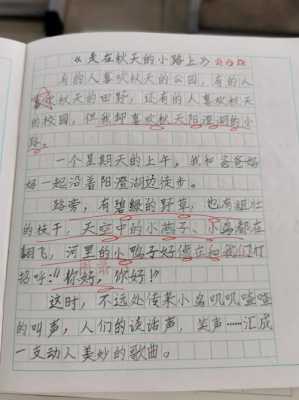 《走在秋天的小路上》☆☆☆
有的人喜欢秋天的公园，有的人
喜欢秋天的田野，还有的人喜欢秋天
的校园，但我却喜欢秋天阳澄湖的小
路。
一个星期天的上午，我和爸爸妈
妈一起沿着阳澄湖边徒步。
路旁，有碧绿的野草，也有粗壮
的枝干，天空中的小燕子、小鸟都在
翻飞，河里的小鸭子好像在和我们打
招呼："你好，你好！"
这时，不远处传来小鸟叽叽喳喳
的叫声，人们的谈话声，笑声……汇成
一支动人美妙的歌曲。